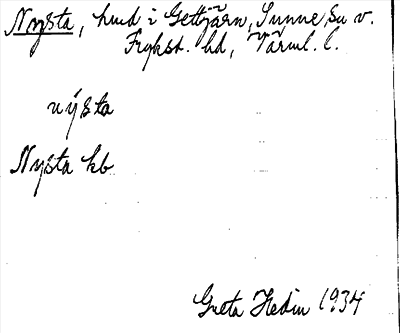 Nysta, hmd i Gettjärn, Sunne, Su v.
Frykst. hd, Värml. l.
nýsta
Nysta kb
Greta Hedin 1934